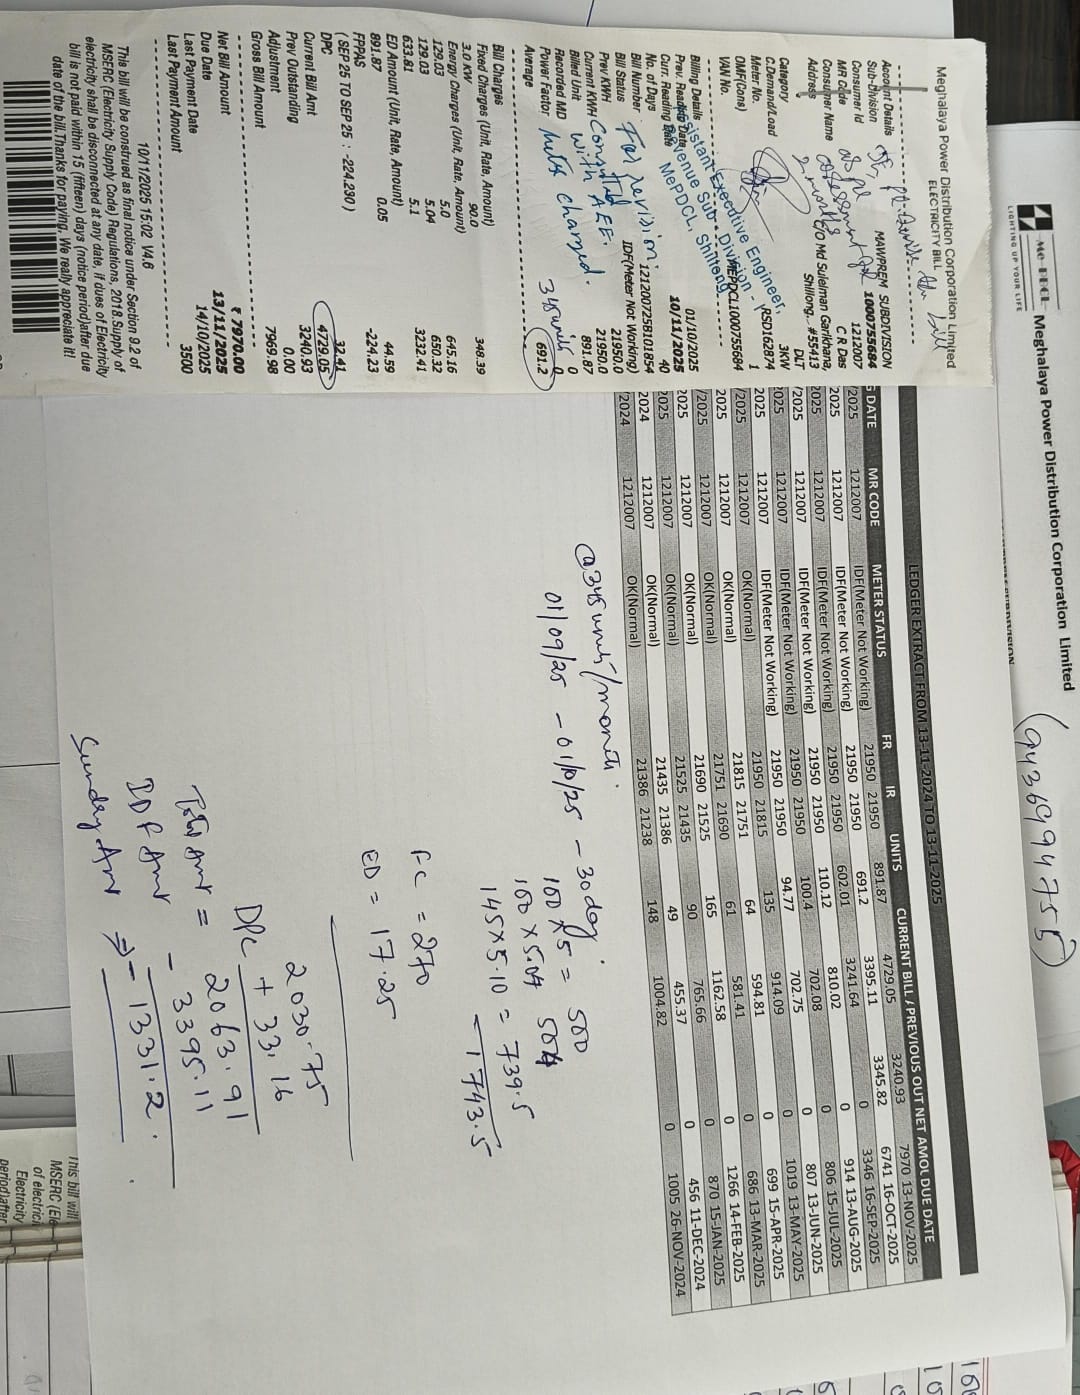 Me PECL Meghalaya Power Distribution Corporation Limited
LIGHTING UP YOUR LIFE
(9436994755)
Meghalaya Power Distribution Corporation Limited
ELECTRICITY BILL
Account Details
Sub-Division MAWPREM SUBDIVISION
Consumer Id 1000755684
MR Code 1212007
Consumer Name C R Das
Address C/O Md Sulelman Garikhana,
Shillong,..#55413
Category DLT
C.Demand/Load 3KW
Meter No. RSD162874
OMF(Cons) 1
VAN No. MEPDCL1000755684
as per
assessment for
2 months
Assistant Executive Engineer,
Revenue Sub - Division -
MePDCL, Shillong
Billing Details
Prev. Reading Date 01/10/2025
Curr. Reading Date 10/11/2025
No. of Days 40
Bill Number 121200725B101854
Bill Status IDF(Meter Not Working)
Prev KWH 21950.0
Current KWH 21950.0
Billed Unit 891.87
Recorded MD 0
Power Factor 0
Average 691.2
For revision.
Consulted
with AEE.
Meter changed.
345 units
Bill Charges
Fixed Charges (Unit, Rate, Amount)
3.0 KW 90.0 348.39
Energy Charges (Unit, Rate, Amount)
129.03 5.0 645.16
129.03 5.04 650.32
633.81 5.1 3232.41
ED Amount (Unit, Rate, Amount)
891.87 0.05 44.59
FPPAS -224.23
( SEP 25 TO SEP 25 : -224.230 )
DPC 32.41
Current Bill Amt 4729.05
Prev Outstanding 3240.93
Adjustment 0.00
Gross Bill Amount 7969.98
Net Bill Amount ₹ 7970.00
Due Date 13/11/2025
Last Payment Date 14/10/2025
Last Payment Amount 3500
10/11/2025 15:02 V4.6
This bill will be construed as final notice under Section 9.2 of
MSERC (Electricity Supply Code) Regulations, 2018.Supply of
electricity shall be disconnected at any date, if dues of Electricity
bill is not paid within 15 (fifteen) days (notice period)after due
date of the bill.Thanks for paying. We really appreciate it!
LEDGER EXTRACT FROM 13-11-2024 TO 13-11-2025
G DATE MR CODE METER STATUS FR IR UNITS CURRENT BILL / PREVIOUS OUT NET AMOU DUE DATE
/2025 1212007 IDF(Meter Not Working) 21950 21950 891.87 4729.05 3240.93 7970 13-NOV-2025
2025 1212007 IDF(Meter Not Working) 21950 21950 691.2 3395.11 3345.82 6741 16-OCT-2025
2025 1212007 IDF(Meter Not Working) 21950 21950 602.01 3241.64 0 3346 16-SEP-2025
/2025 1212007 IDF(Meter Not Working) 21950 21950 110.12 810.02 0 914 13-AUG-2025
2025 1212007 IDF(Meter Not Working) 21950 21950 100.4 702.08 0 806 15-JUL-2025
2025 1212007 IDF(Meter Not Working) 21950 21950 94.77 702.75 0 807 13-JUN-2025
/2025 1212007 IDF(Meter Not Working) 21950 21950 135 914.09 0 1019 13-MAY-2025
2025 1212007 OK(Normal) 21950 21815 64 594.81 0 699 15-APR-2025
/2025 1212007 OK(Normal) 21815 21751 61 581.41 0 686 13-MAR-2025
2025 1212007 OK(Normal) 21751 21690 165 1162.58 0 1266 14-FEB-2025
2025 1212007 OK(Normal) 21690 21525 90 765.66 0 870 15-JAN-2025
2024 1212007 OK(Normal) 21525 21435 49 455.37 0 456 11-DEC-2024
/2024 1212007 OK(Normal) 21435 21386 148 1004.82 0 1005 26-NOV-2024
21386 21238
@ 345 units/month.
01/09/25 - 01/10/25 - 30 day.
100 × 5 = 500
100 × 5.04 504
145 × 5.10 = 739.5
1743.5
FC = 270
ED = 17.25
2030.75
DPC + 33.16
Total Amt = 2063.91
IDF Amt - 3395.11
Sundry Amt ⇒ - 1331.2.
This bill will
MSERC (Ele
of electrici
Electricity
period)after